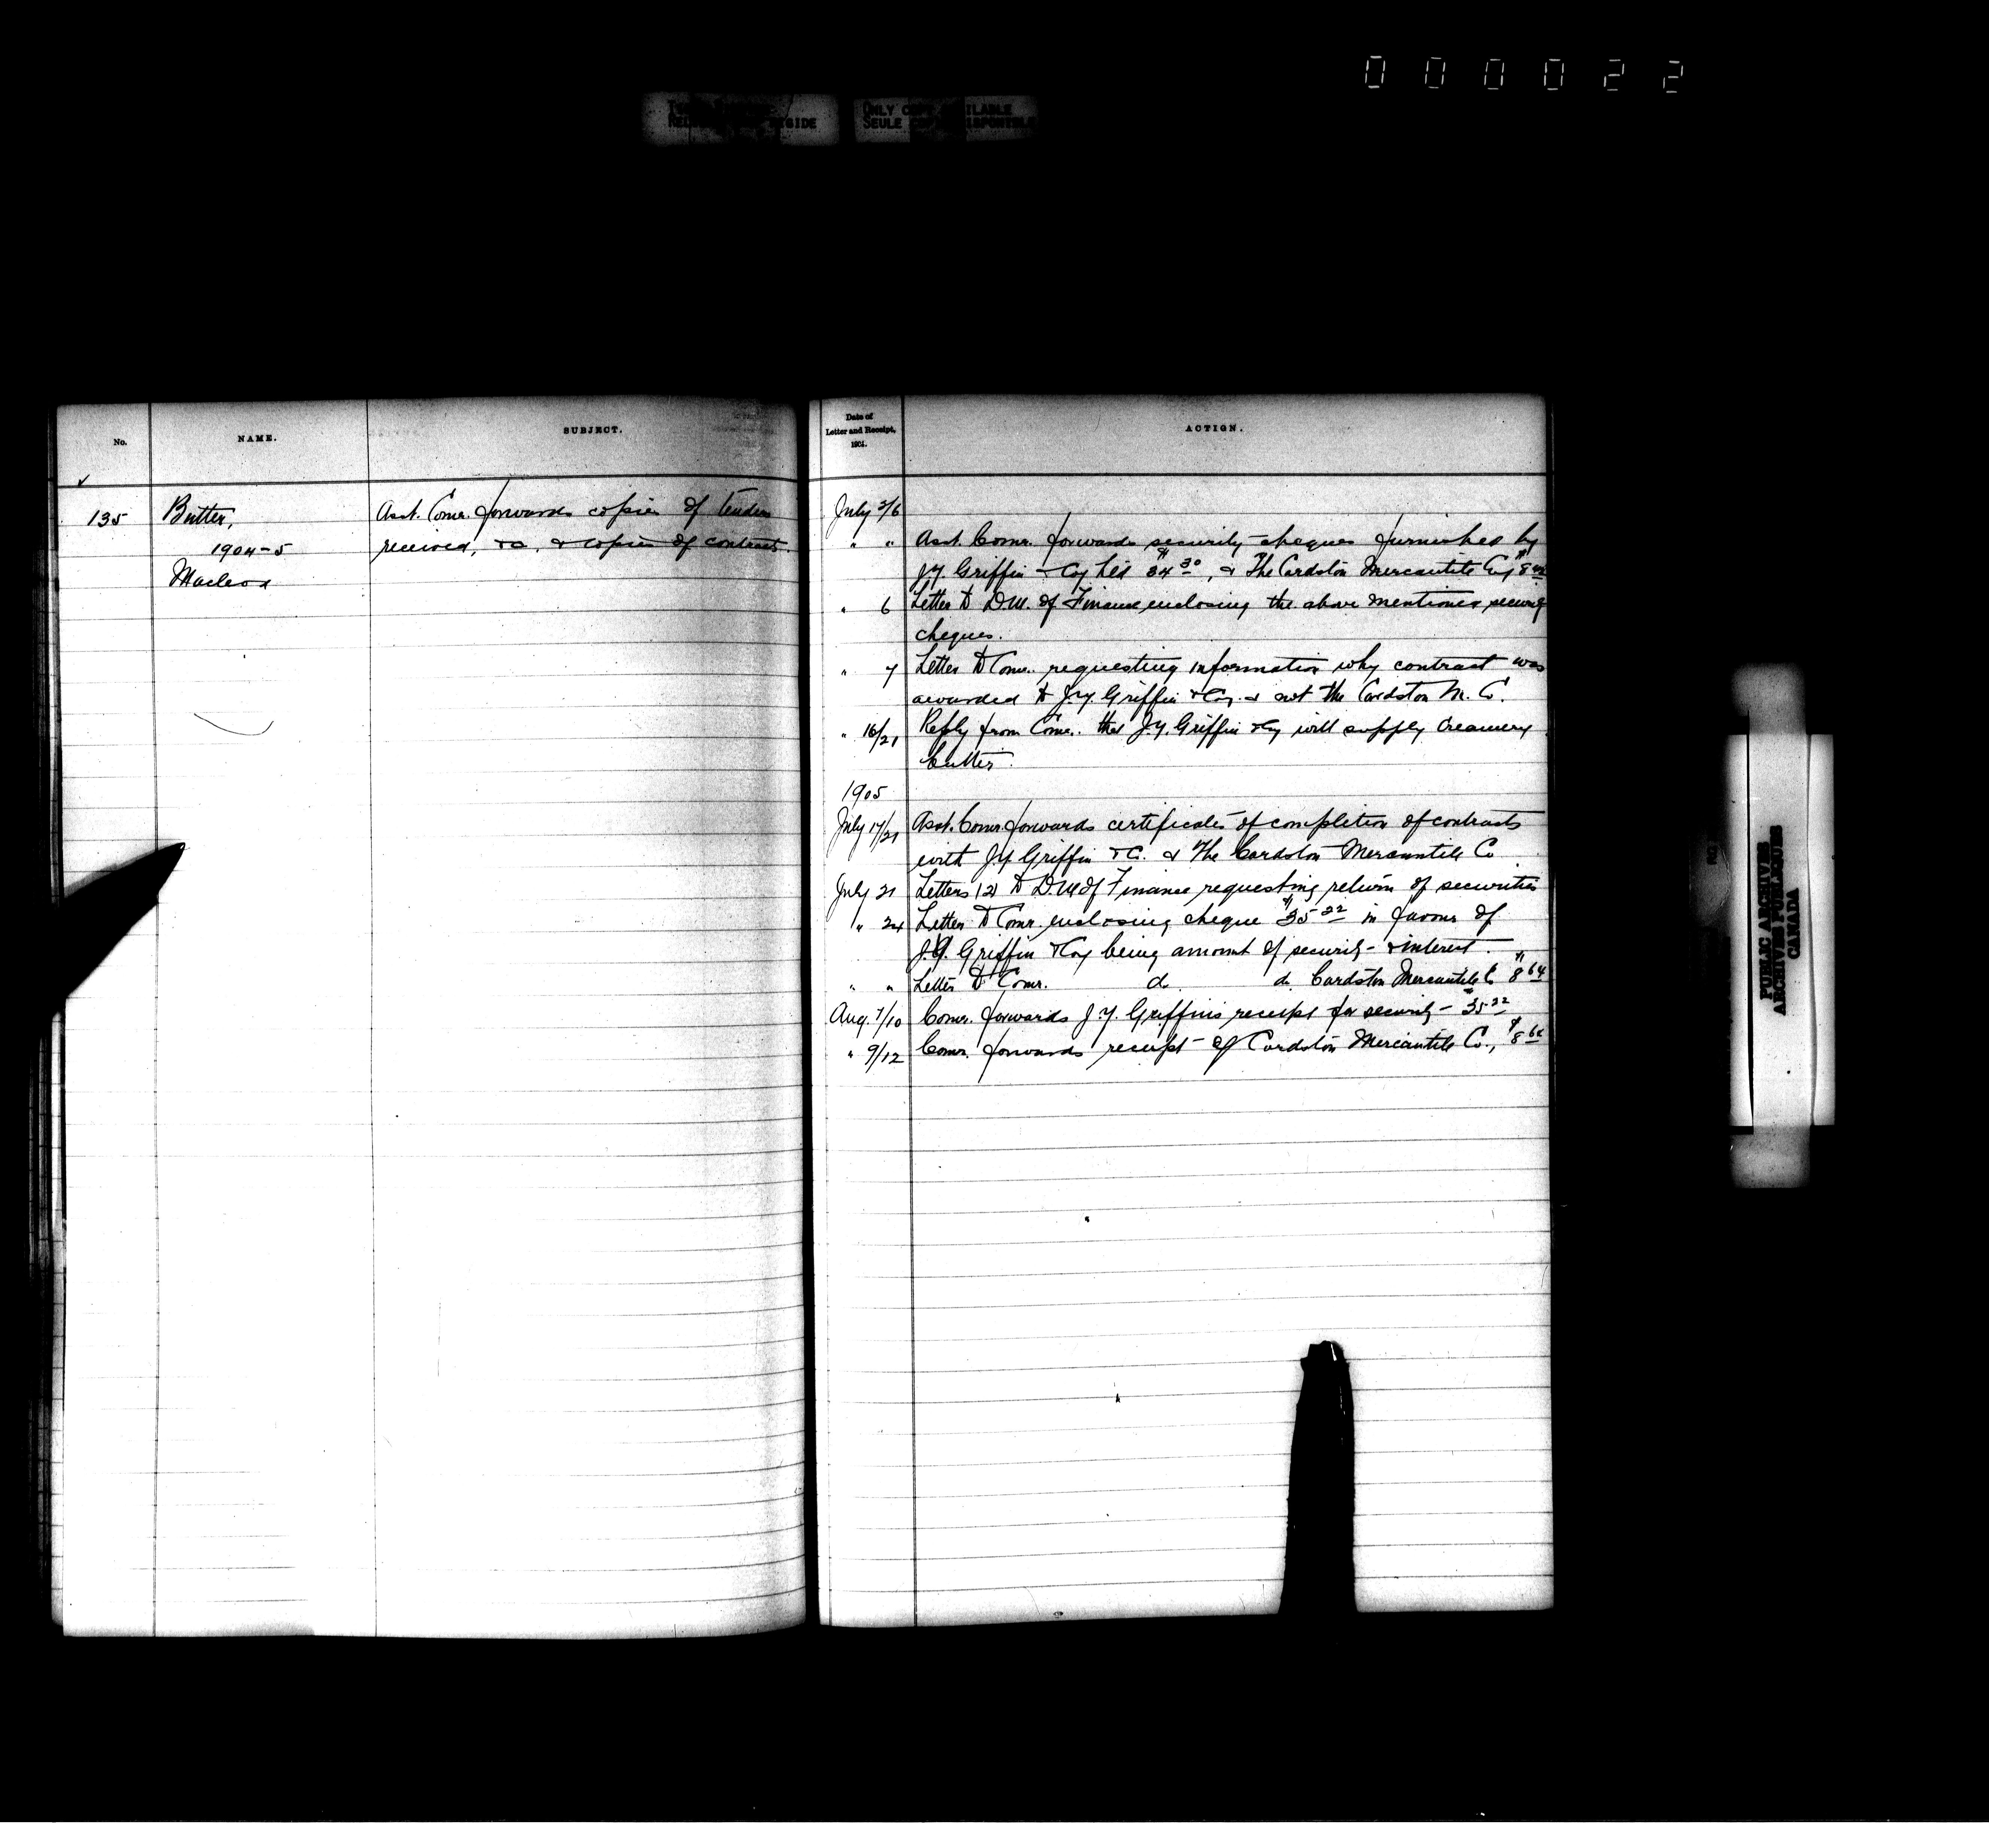 000022
ONLY COPY AVAILABLE
SEULE COPIE DISPONIBLE
No.
NAME.
SUBJECT.
Date of
Letter and Receipt,
1904.
ACTION.
135
Butter,
1904-5
Macleod
Asst. Comr. forwards copies of tenders
received, &c., & copies of contracts.
July 2/6
" " Asst. Comr. forwards security cheques furnished by
J.Y. Griffin & Coy Ltd $34.30, & The Cardston Mercantile Coy $8
" 6 Letter to D.M. of Finance enclosing the above mentioned security
cheques.
" 7 Letter to Comr. requesting information why contract was
awarded to J.Y. Griffin & Coy. & not the Cardston M. Co.
" 16/21 Reply from Comr. that J.Y. Griffin & Coy will supply Creamery
butter.
1905
July 17/21 Asst. Comr. forwards certificates of completion of contracts
with J.Y. Griffin & Co. & The Cardston Mercantile Co
July 21 Letters (2) to D.M. of Finance requesting return of securities
" 24 Letter to Comr. enclosing cheque $35.22 in favour of
J.Y. Griffin & Coy being amount of security & interest.
" " Letter to Comr. do. do. Cardston Mercantile Co $8.64
Aug. 7/10 Comr. forwards J.Y. Griffin's receipt for security - 35.22
" 9/12 Comr. forwards receipt of Cardston Mercantile Co., $8.64
PUBLIC ARCHIVES
ARCHIVES PUBLIQUES
CANADA